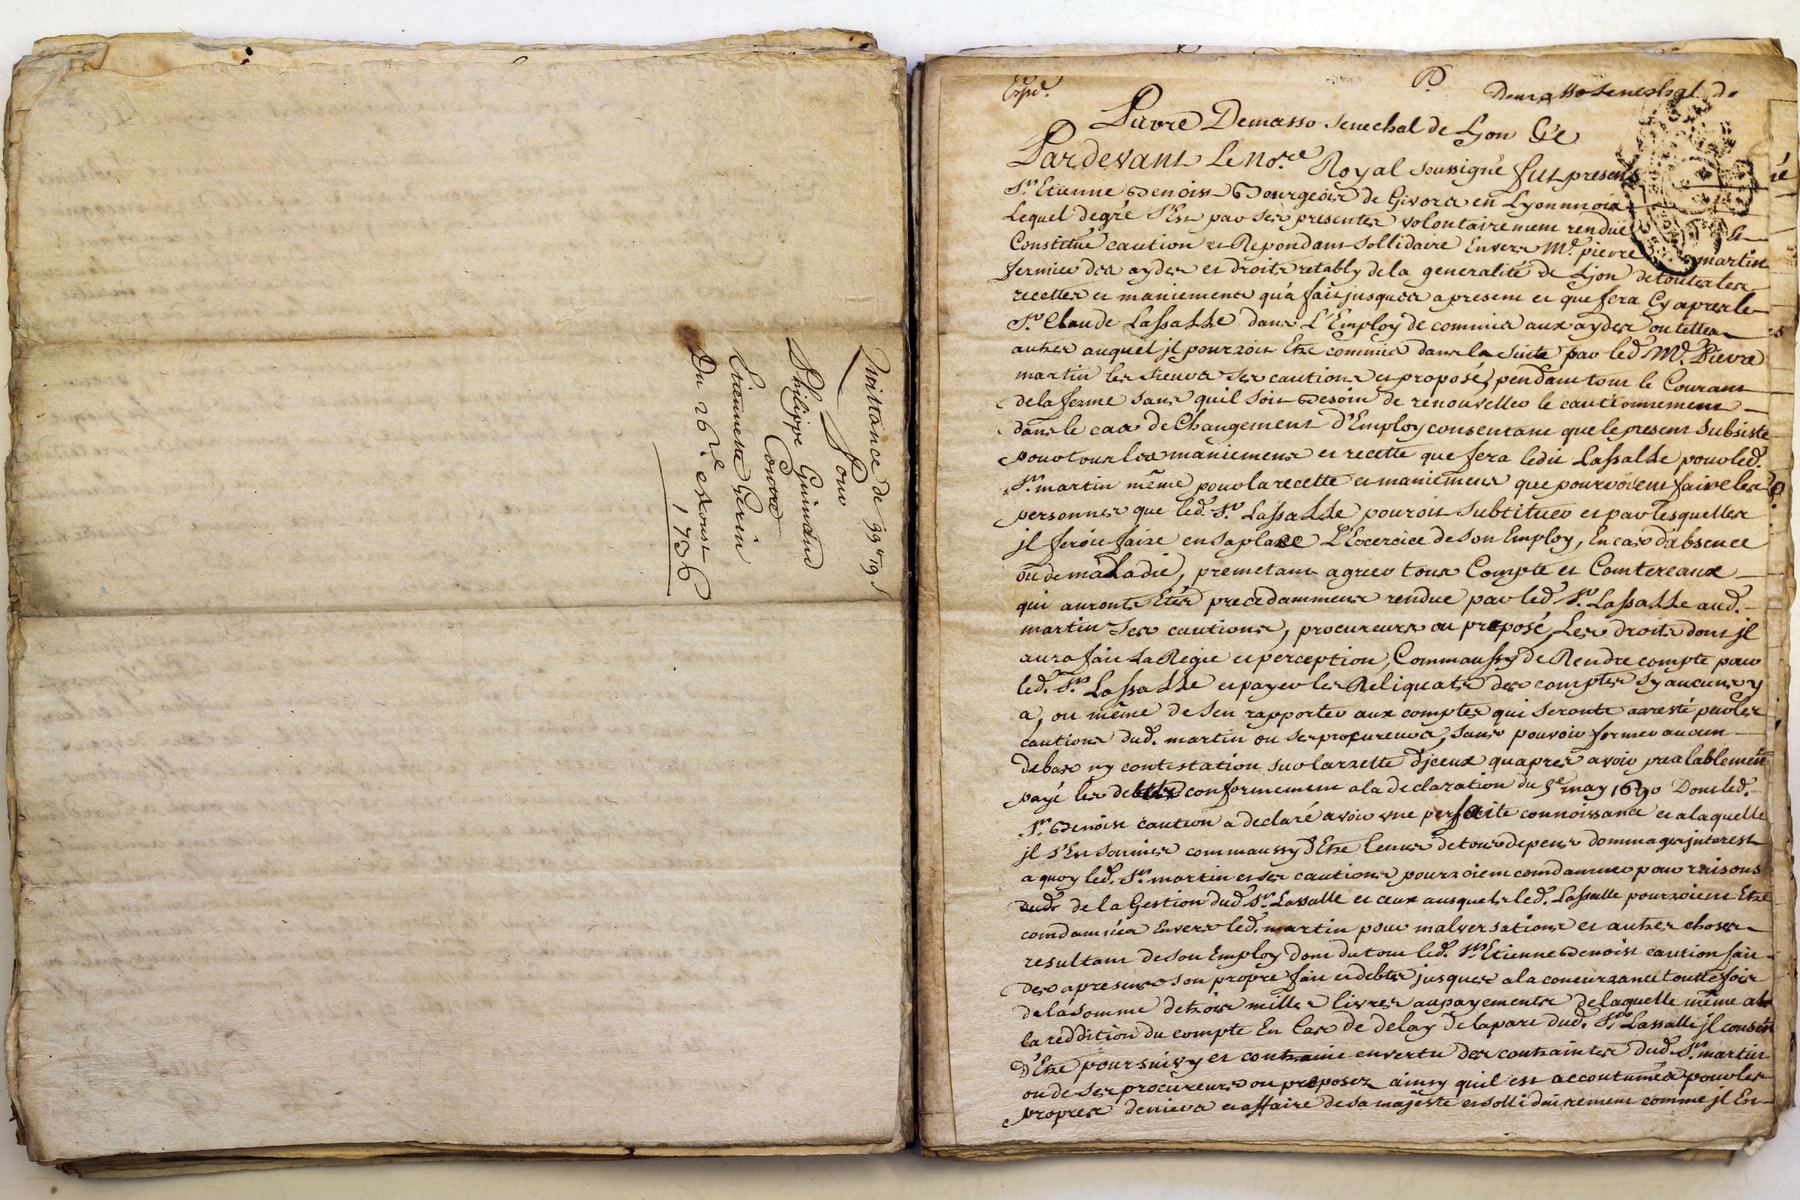 Quittance de 39ᵗᵗ 19ˢ
Pour
Philippe Guinand
Contre
Etiennette Gerin
Du 26ᵉ. exoust
1736
Expé.
P.
Senechal de
Demasso Senechal de Lyon &c
Pardevant Le Noʳᵉ Royal soussigné fut present
Sʳ. Etienne Benoist Bourgeois de Givors en Lyonnnois
Lequel degré S'Est par ses presentes volontairement rendue
Constitué caution et Repondant sollidaire Envers Mᵉ. pierre martin
fermier des aydes et droits retably de la generalité de Lyon de toutes les
recettes et maniements qu'a fait jusques a present et que fera Cy apres le
Sʳ. Claude Lassalle dans L'Employ de commis aux aydes ou telles
autres auquel jl pourroit Etre commis dans la suite par led. Mᵉ. Pierre
martin les sieurs ses cautions et proposé, pendant tout le Courant
de la ferme sans quil soit Besoin de renouveller le cautionnement
dans le cas de Changement d'Employ consentant que le present Subsiste
pour tous les maniements et recette que fera ledit Lassalle pour led.
Sʳ. martin même pour la recette et maniement que pourroient faire les
personnes que led. Sʳ. Lassalle pouroit Subtituer et par lesquelles
jl feroit faire en sa place L'Excercice de son Employ, En cas d'absence
ou de maladie, prometant agreer tous Compte et Contereaux
qui auronts Etés precedamment rendue par led. Sʳ. Lassalle aud.
martin Ses cautions, procureurs ou proposé, Les droits dont jl
aura fait La Regie et perception, Commaussy de Rendre compte pour
led. Sʳ. Lassalle et payer les Reliquats des comptes Sy aucuns y
a, ou même de s'en rapporter aux comptes qui seronts arresté par les
cautions dud. martin ou ses procureurs, sans pouvoir former aucun
debat ny contestation sur larrette d'jceux quapres avoir prealablement
payé les debets conformement a la declaration du 5ᵉ may 1690 Dont led.
Sʳ. Benoist caution a declaré avoir une perfaite connoissance et a laquelle
jl s'En soumis commaussy d'Etre tenus de tous depens dommages jnterest
a quoy led. Sʳ. martin et ses cautions pourroient condamnes pour raisons
de la Gestion dud. Sʳ. Lassalle et ceux ausquels led. Lassalle pourroient Etre
condamnés Envers led. martin pour malversations et autres choses
resultant de son Employ dont du tout led. Sʳ. Etienne Benoist caution fait
des a present son propre fait et debtes jusques a la concurrance touttefois
de la somme de trois milles livres au payements de laquelle même a
la reddition du compte En Cas de delay de la part dud. Sʳ. Lassalle jl consent
d'Etre poursuivy et contraint en vertu des contraintes dud. Sʳ. martin
ou de ses procureurs ou proposez ainsy quil est accoutumés pour les
propres deniers et affaire de sa majesté et sollidairement comme jl En